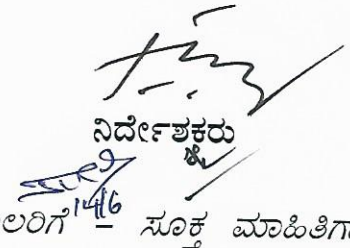 ನಿರ್ದೇಶಕರು
14/6
ಲರಿಗೆ – ಸೂಕ್ತ ಮಾಹಿತಿಗಾ